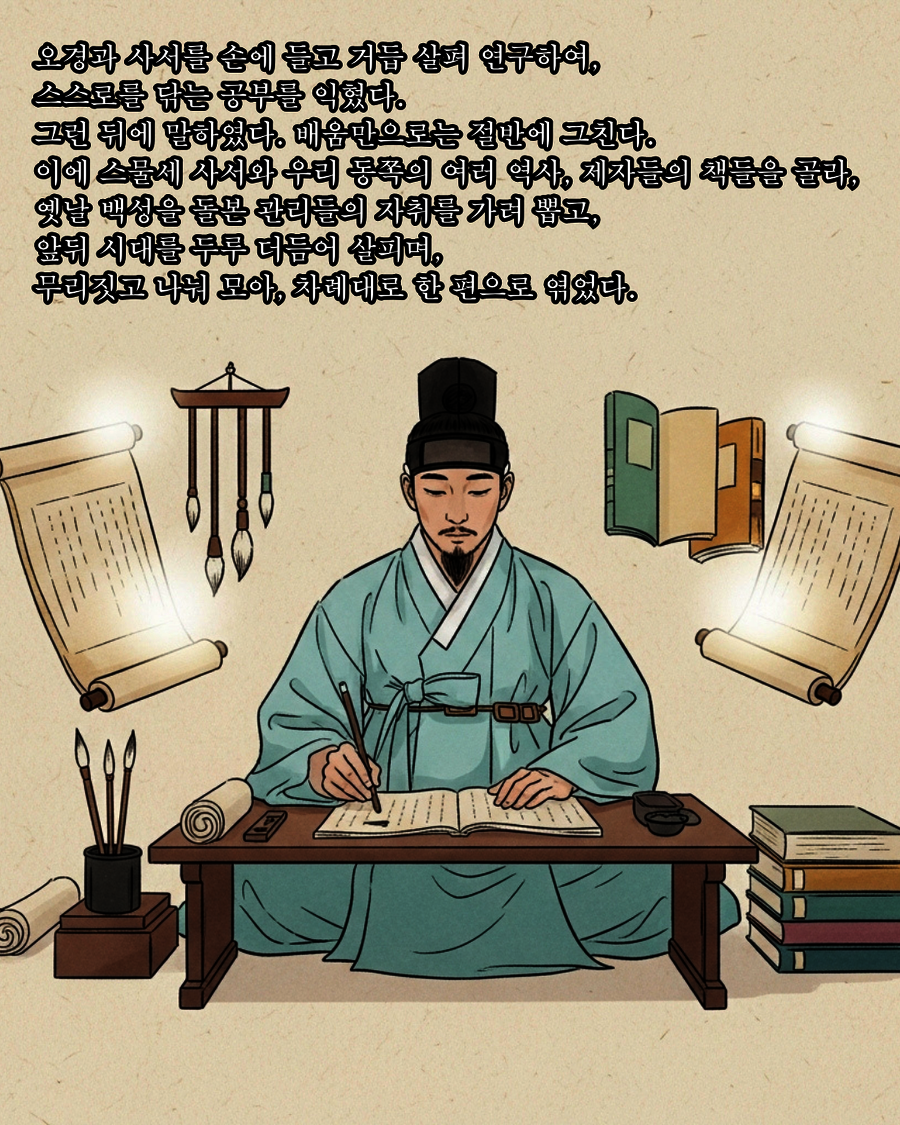 오경과 사서를 손에 들고 거듭 살펴 연구하여,
스스로를 닦는 공부를 익혔다.
그런 뒤에 말하였다. 배움만으로는 절반에 그친다.
이에 스물세 사서와 우리 동쪽의 여러 역사, 제자들의 책들을 골라,
옛날 백성을 돌본 관리들의 자취를 가려 뽑고,
앞뒤 시대를 두루 더듬어 살피며,
무리짓고 나눠 모아, 차례대로 한 편으로 엮었다.